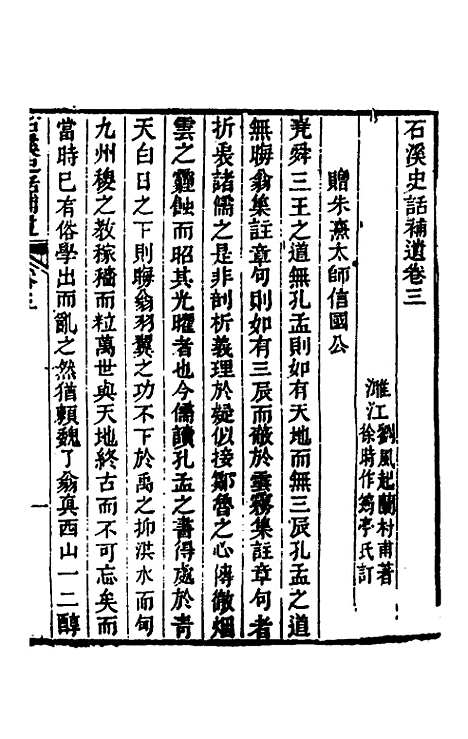 石溪史話補遺卷三
濰江劉鳳起蘭村甫著
徐時作筠亭氏訂
贈朱熹太師信國公
堯舜三王之道無孔孟則如有天地而無三辰孔孟之道
無晦翁集註章句則如有三辰而蔽於雲霧集註章句者
折衷諸儒之是非剖析義理於疑似接鄒魯之心傳徹烟
雲之霾蝕而昭其光曜者也今儒讀孔孟之書得處於青
天白日之下則晦翁羽翼之功不下於禹之抑洪水而甸
九州稷之教稼穡而粒萬世與天地終古而不可忘矣而
當時已有俗學出而亂之然猶賴魏了翁真西山一二醇
石溪史話補遺 卷三 一